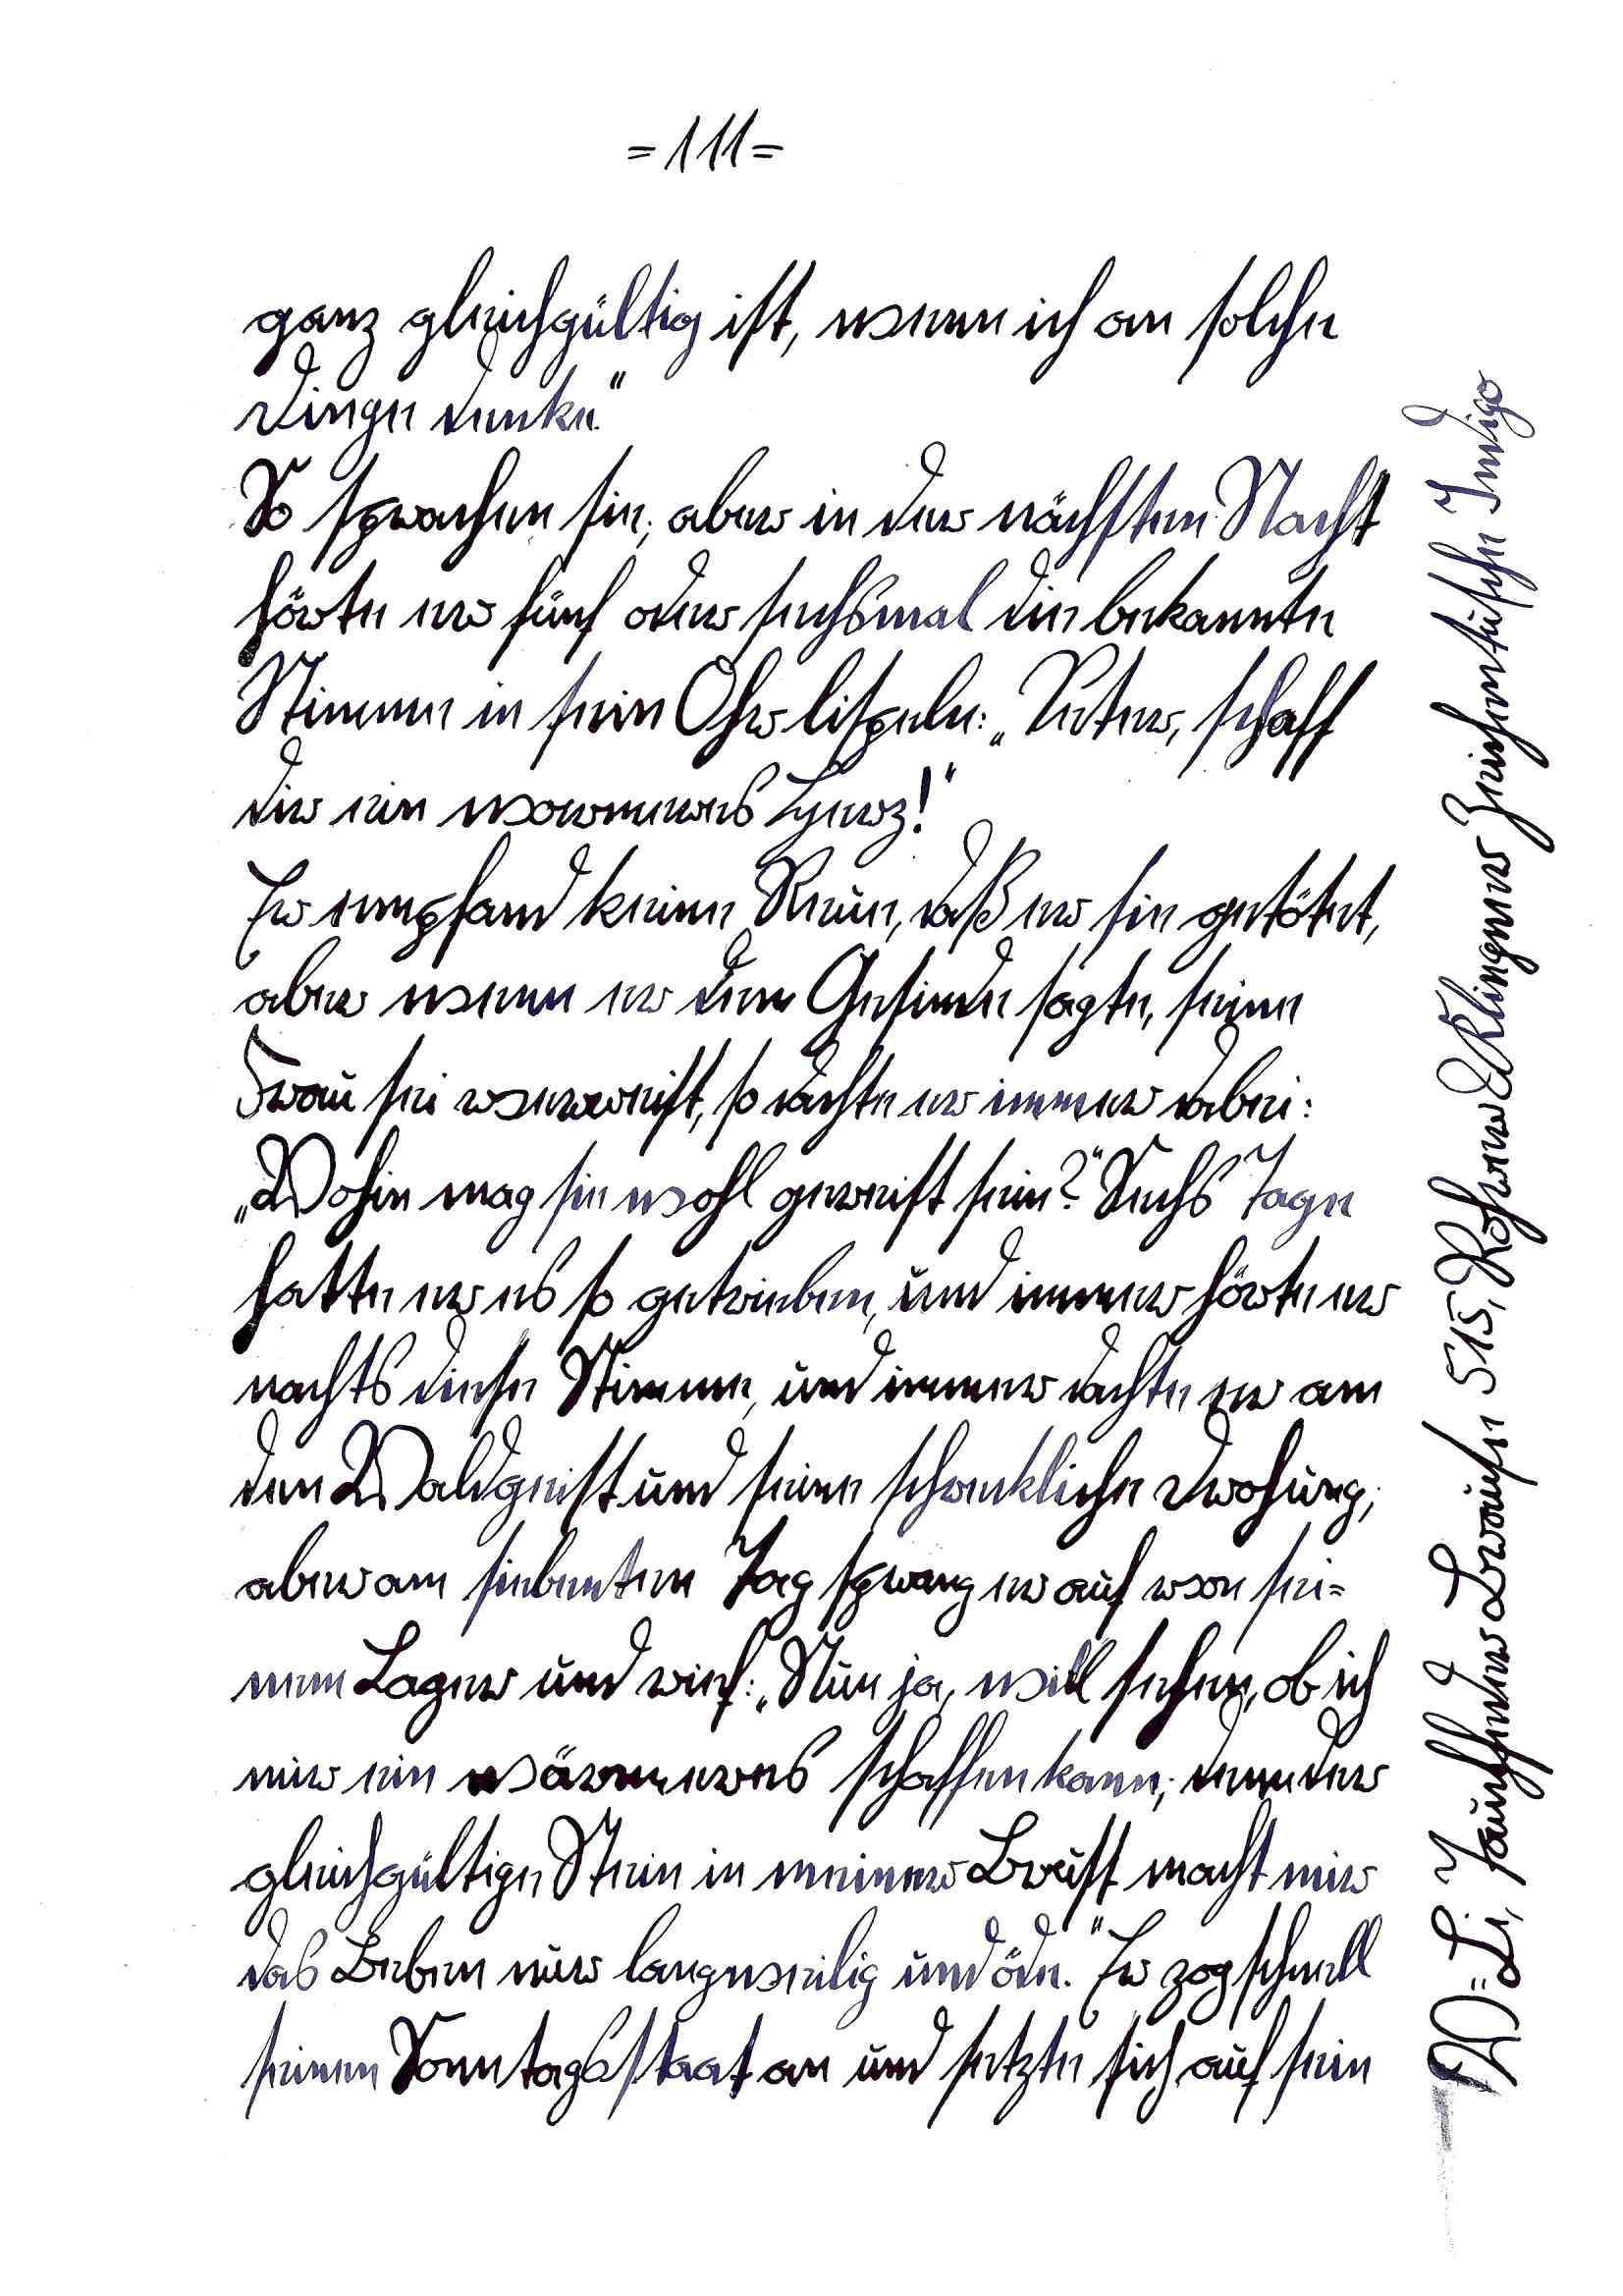 =111=
ganz gleichgültig ist, wenn ich an solche
Dinge denke."
So sprachen sie; aber in der nächsten Nacht
hörte er fünf oder sechsmal die bekannte
Stimme in sein Ohr lispeln: „Peter, schaff
dir ein wärmeres Herz!"
Er empfand keine Reue, daß er sie getötet,
aber wenn er dem Gesinde sagte, seine
Frau sei verreist, so dachte er immer dabei:
„Wohin mag sie wohl gereist sein?" Sechs Tage
hatte er es so getrieben, und immer hörte er
nachts diese Stimme, und immer dachte er an
den Waldgeist und seine schreckliche Drohung;
aber am siebenten Tag sprang er auf von sei=
nem Lager und rief: „Nun ja, will sehen, ob ich
mir ein wärmeres schaffen kann; denn der
gleichgültige Stein in meiner Brust macht mir
das Leben nur langweilig und öde." Er zog schnell
seinen Sonntagsstaat an und setzte sich auf sein
W=Li, Tauchfeder Brause 515, Rohrer & Klingner Zeichentusche Indigo